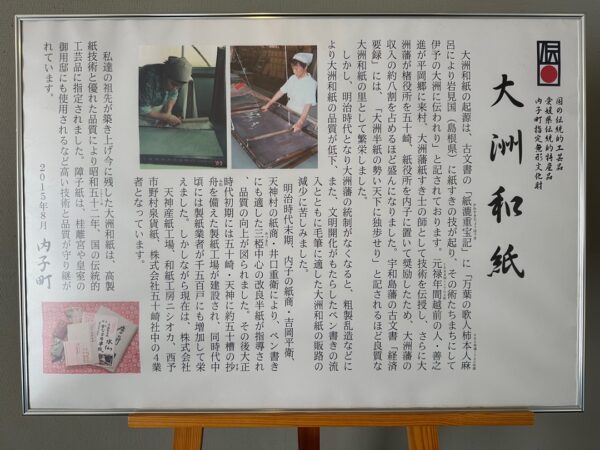 伝
国の伝統的工芸品
愛媛県伝統的特産品
内子町指定無形文化財
大洲和紙
大洲和紙の起源は、古文書の「紙漉重宝記」に「万葉の歌人柿本人麻
呂により岩見国（島根県）に紙すきの技が起り、その術たちまちにして
伊予の大洲に伝われり」と記されております。元禄年間越前の人・善之
進が平岡郷に来村、大洲藩紙すき士の師として技術を伝授し、さらに大
洲藩が楮役所を五十崎、紙役所を内子に置いて奨励したため、大洲藩の
収入の約八割を占めるほど盛んになりました。宇和島藩の古文書「経済
要録」には、「大洲半紙の勢い天下に独歩せり」と記されるほど良質な
大洲和紙の里として繁栄しました。
しかし、明治時代となり大洲藩の統制がなくなると、粗製乱造などに
より大洲和紙の品質が低下、また、文明開化がもたらしたペン書きの流
入とともに毛筆に適した大洲和紙の販路の
減少に苦しみました。
明治時代末期、内子の紙商・吉岡平衛、
天神村の紙商・井口重衛により、ペン書き
にも適した三椏中心の改良半紙が指導され
、品質の向上が図られました。その後大正
時代初期には五十崎・天神に約五十槽の抄
舟を備えた製紙工場が建設され、同時代中
頃には製紙業者が千五百戸にも増加して栄
えました。しかしながら現在は、株式会社
天神産紙工場、和紙工房ニシオカ、西予
市野村泉貨紙、株式会社五十崎社中の４業
者となっています。
私達の祖先が築き上げ今に残した大洲和紙は、高製
紙技術と優れた品質により昭和五十二年、国の伝統的
工芸品に指定されました。障子紙は、桂離宮や皇室の
御用邸にも使用されるなど高い技術と品質が守り継が
れています。
２０１５年８月 内子町